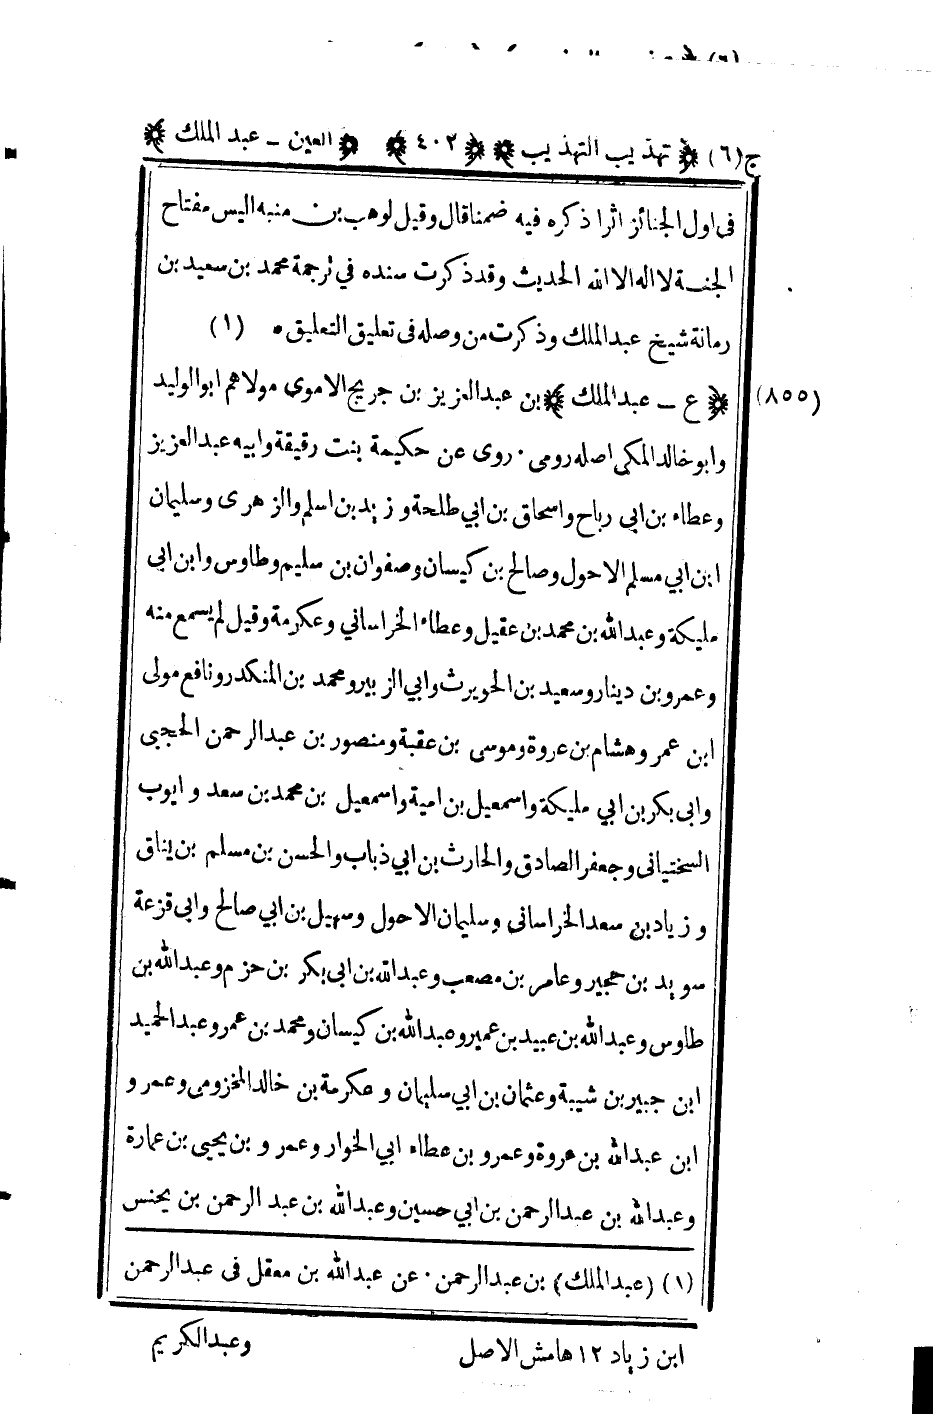 ج(٦) تهذيب التهذيب ٤٠٢ العين ــ عبد الملك
فى اول الجنائز اثرا ذكره فيه ضمنا قال وقيل لوهب بن منبه اليس مفتاح
الجنة لا اله الا الله الحديث وقد ذكرت سنده في ترجمة محمد بن سعيد بن
رمانة شيخ عبد الملك وذكرت من وصله فى تعليق التعليق • (١)
(٨٥٥) ع ــ عبد الملك بن عبد العزيز بن جريج الاموي مولاهم ابو الوليد
وابو خالد المكي اصله رومى • روى عن حكيمة بنت رقيقة وابيه عبد العزيز
وعطاء بن ابي رباح واسحاق بن ابي طلحة وزيد بن اسلم والزهرى وسليمان
ابن ابي مسلم الاحول وصالح بن كيسان وصفوان بن سليم وطاوس وابن ابي
مليكة وعبد الله بن محمد بن عقيل وعطاء الخراساني وعكرمة وقيل لم يسمع منه
وعمرو بن دينار وسعيد بن الحويرث وابي الزبير ومحمد بن المنكدر ونافع مولى
ابن عمر وهشام بن عروة وموسى بن عقبة ومنصور بن عبد الرحمن الحجبى
وابى بكر بن ابي مليكة واسمعيل بن امية واسمعيل بن محمد بن سعد وايوب
السختيانى وجعفر الصادق والحارث بن ابي ذباب والحسن بن مسلم بن يناق
وزياد بن سعد الخراسانى وسليمان الاحول وسهيل بن ابي صالح وابى قزعة
سويد بن حجير وعامر بن مصعب وعبد الله بن ابى بكر بن حزم وعبد الله بن
طاوس وعبد الله بن عبيد بن عمير وعبد الله بن كيسان ومحمد بن عمرو عبد الحميد
ابن جبير بن شيبة وعثمان بن ابي سليمان وعكرمة بن خالد المخزومى وعمر و
ابن عبد الله بن عروة وعمرو بن عطاء ابي الخوار وعمر و بن يحيى بن عمارة
وعبد الله بن عبد الرحمن بن ابي حسين وعبد الله بن عبد الرحمن بن يحنس
(١) (عبد الملك) بن عبد الرحمن • عن عبد الله بن معقل فى عبد الرحمن
ابن زياد ١٢ هامش الاصل
وعبد الكريم